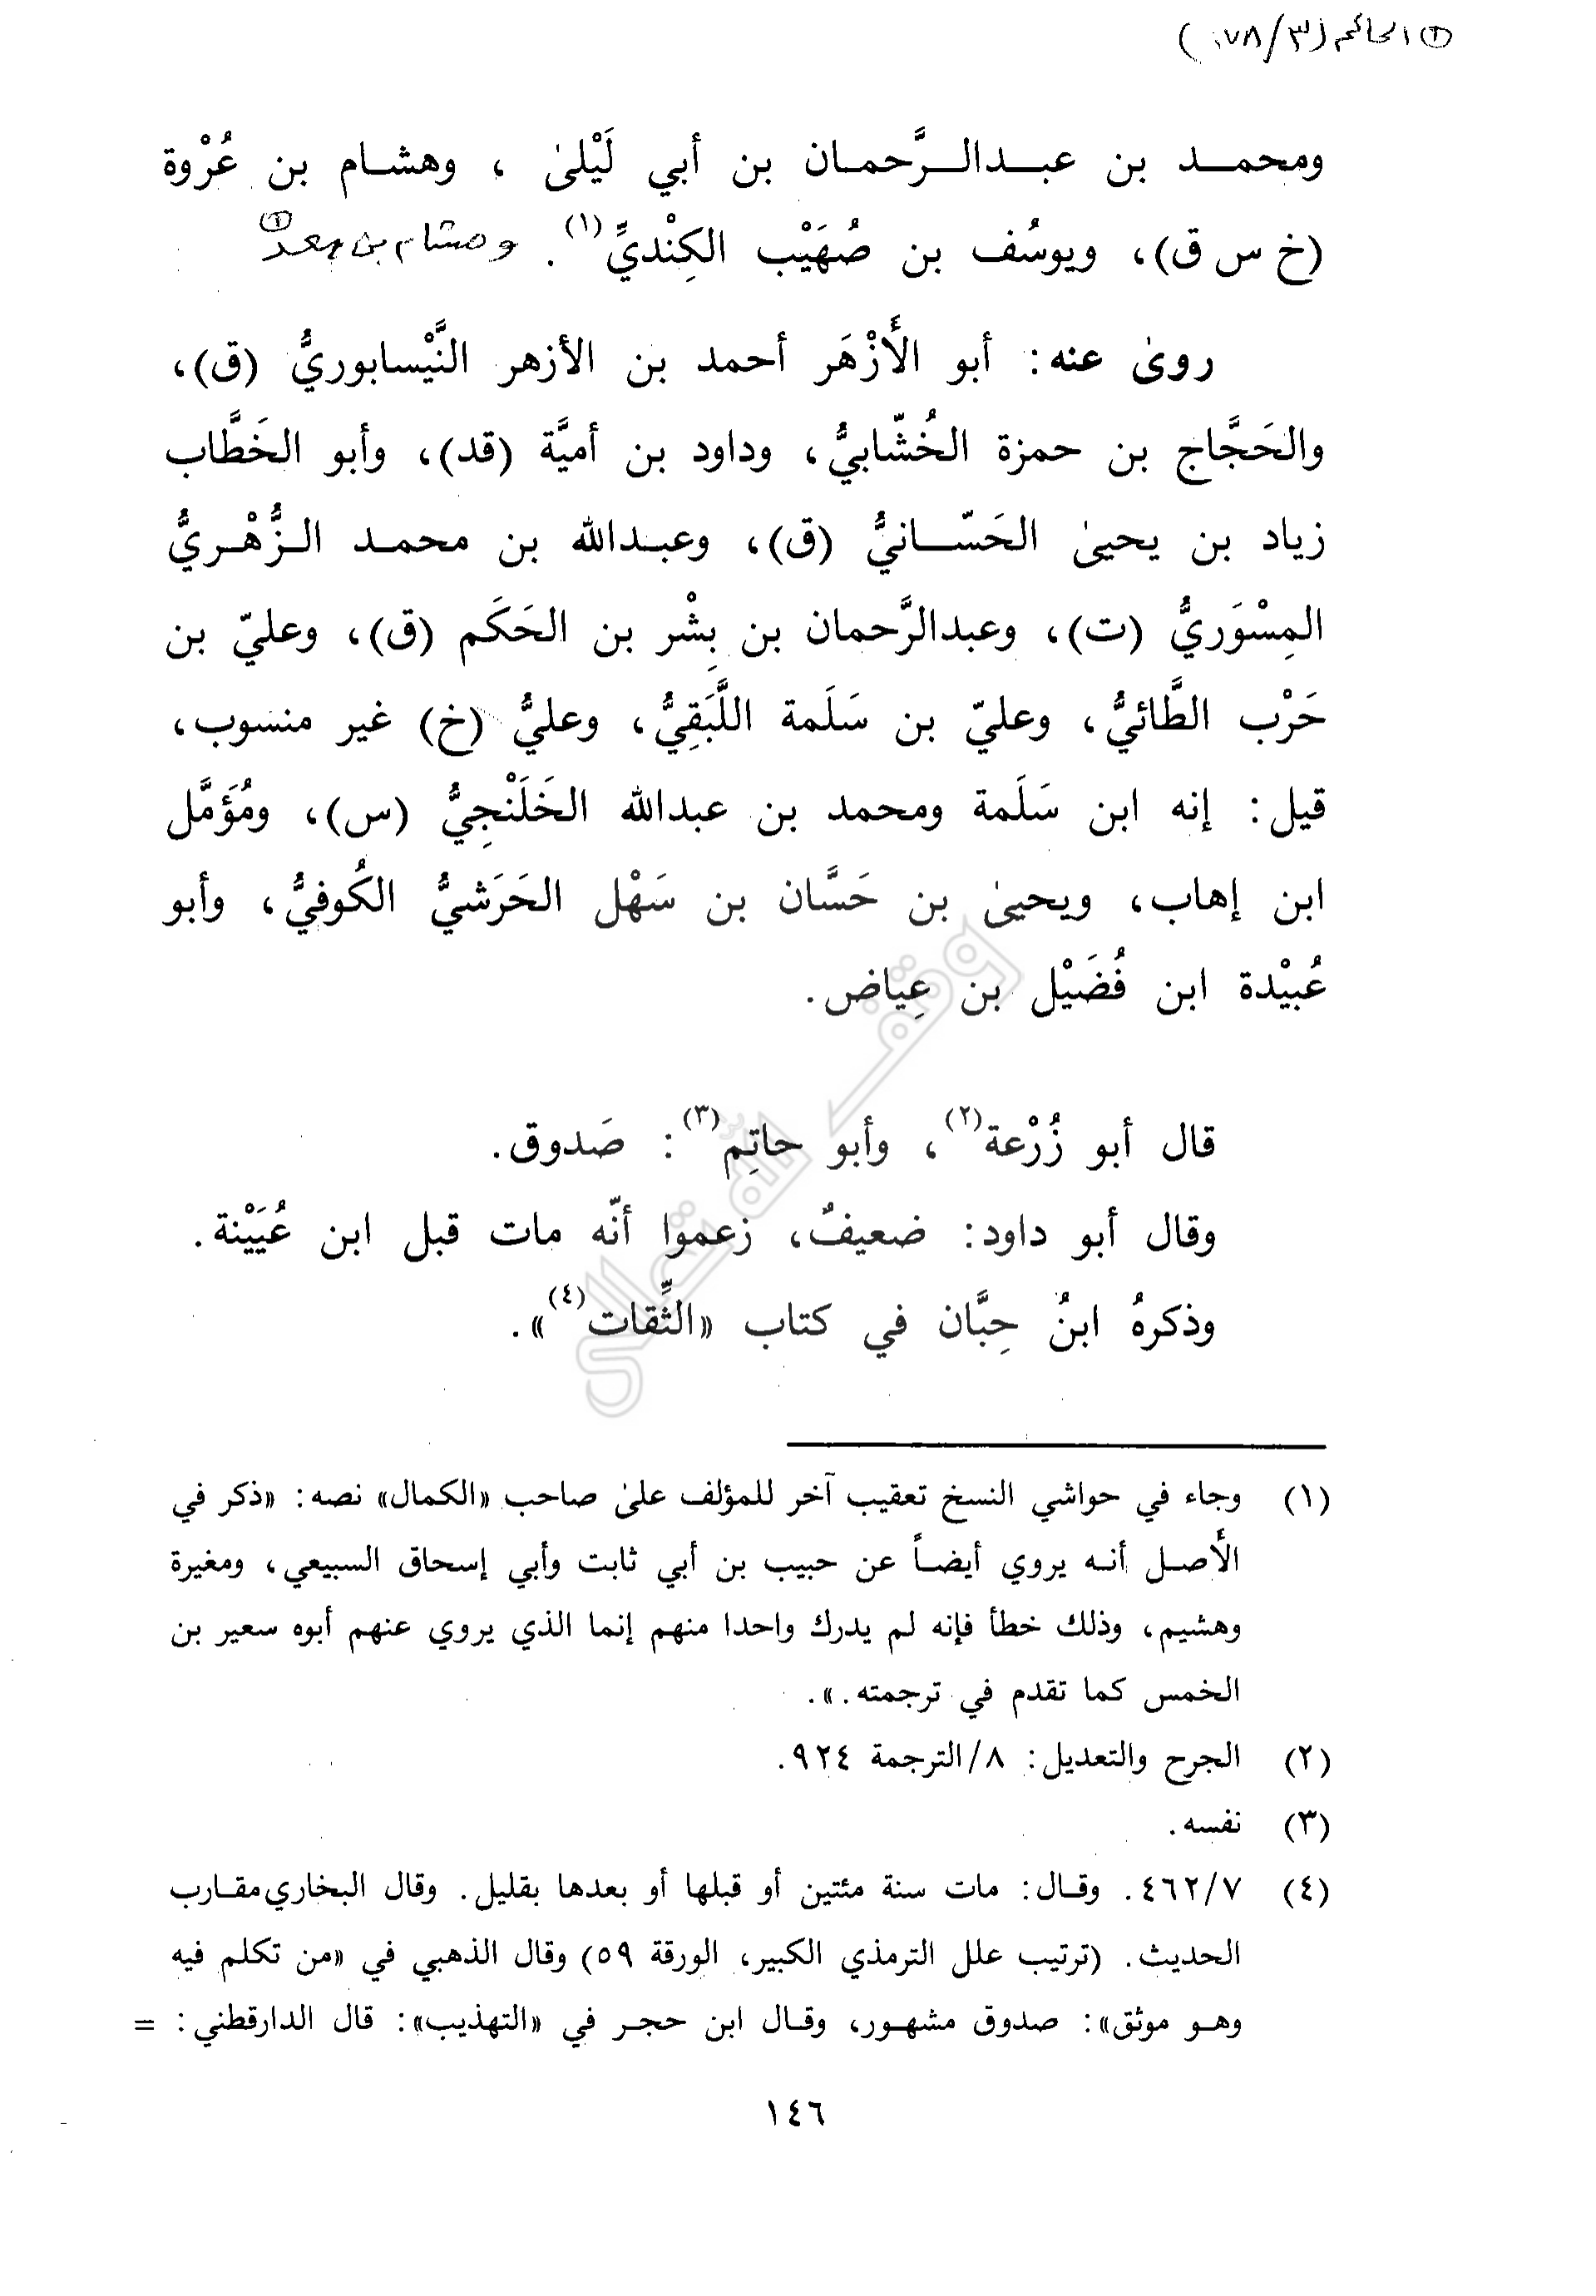 ① الحاكم (٣/٧٨)
ومحمد بن عبدالرَّحمان بن أبي لَيْلىٰ ، وهشام بن عُرْوة
(خ س ق)، ويوسُف بن صُهَيْب الكِنْديِّ(١). وهشام بن سعد①
روىٰ عنه: أبو الأَزْهَر أحمد بن الأزهر النَّيْسابوريُّ (ق)،
والحَجَّاج بن حمزة الخُشّابيُّ، وداود بن أميَّة (قد)، وأبو الخَطَّاب
زياد بن يحيىٰ الحَسّانيُّ (ق)، وعبدالله بن محمد الزُّهْريُّ
المِسْوَريُّ (ت)، وعبدالرَّحمان بن بِشْر بن الحَكَم (ق)، وعليّ بن
حَرْب الطَّائيُّ، وعليّ بن سَلَمة اللَّبَقِيُّ، وعليُّ (خ) غير منسوب،
قيل: إنه ابن سَلَمة ومحمد بن عبدالله الخَلَنْجِيُّ (س)، ومُؤَمَّل
ابن إهاب، ويحيىٰ بن حَسَّان بن سَهْل الحَرَشيُّ الكُوفيُّ، وأبو
عُبيْدة ابن فُضَيْل بن عِياض.
قال أبو زُرْعة(٢)، وأبو حاتِم(٣): صَدوق.
وقال أبو داود: ضعيفٌ، زعموا أنّه مات قبل ابن عُيَيْنة.
وذكرهُ ابنُ حِبَّان في كتاب «الثِّقات(٤)».
(١) وجاء في حواشي النسخ تعقيب آخر للمؤلف علىٰ صاحب «الكمال» نصه: «ذكر في
الأَصل أنه يروي أيضاً عن حبيب بن أبي ثابت وأبي إسحاق السبيعي، ومغيرة
وهشيم، وذلك خطأ فإنه لم يدرك واحدا منهم إنما الذي يروي عنهم أبوه سعير بن
الخمس كما تقدم في ترجمته.».
(٢) الجرح والتعديل: ٨/الترجمة ٩٢٤.
(٣) نفسه.
(٤) ٤٦٢/٧. وقال: مات سنة مئتين أو قبلها أو بعدها بقليل. وقال البخاري مقارب
الحديث. (ترتيب علل الترمذي الكبير، الورقة ٥٩) وقال الذهبي في «من تكلم فيه
وهو موثق»: صدوق مشهور، وقال ابن حجر في «التهذيب»: قال الدارقطني: =
١٤٦
وقف لله تعالى